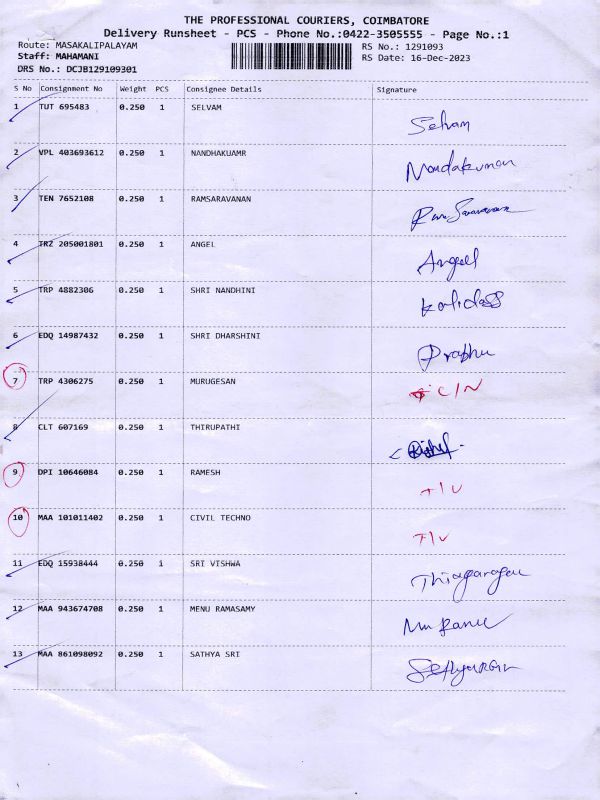 THE PROFESSIONAL COURIERS, COIMBATORE
Delivery Runsheet - PCS - Phone No.:0422-3505555 - Page No.:1
Route: MASAKALIPALAYAM RS No.: 1291093
Staff: MAHAMANI RS Date: 16-Dec-2023
DRS No.: DCJB129109301
S No Consignment No Weight PCS Consignee Details Signature
1 TUT 695483 0.250 1 SELVAM Selvam
2 VPL 403693612 0.250 1 NANDHAKUAMR Nandakumar
3 TEN 7652108 0.250 1 RAMSARAVANAN
4 TRZ 205001801 0.250 1 ANGEL Angel
5 TRP 4882306 0.250 1 SHRI NANDHINI Kalidass
6 EDQ 14987432 0.250 1 SHRI DHARSHINI Prabhu
7 TRP 4306275 0.250 1 MURUGESAN C/N
8 CLT 607169 0.250 1 THIRUPATHI
9 DPI 10646084 0.250 1 RAMESH
10 MAA 101011402 0.250 1 CIVIL TECHNO
11 EDQ 15938444 0.250 1 SRI VISHWA
12 MAA 943674708 0.250 1 MENU RAMASAMY
13 MAA 861098092 0.250 1 SATHYA SRI